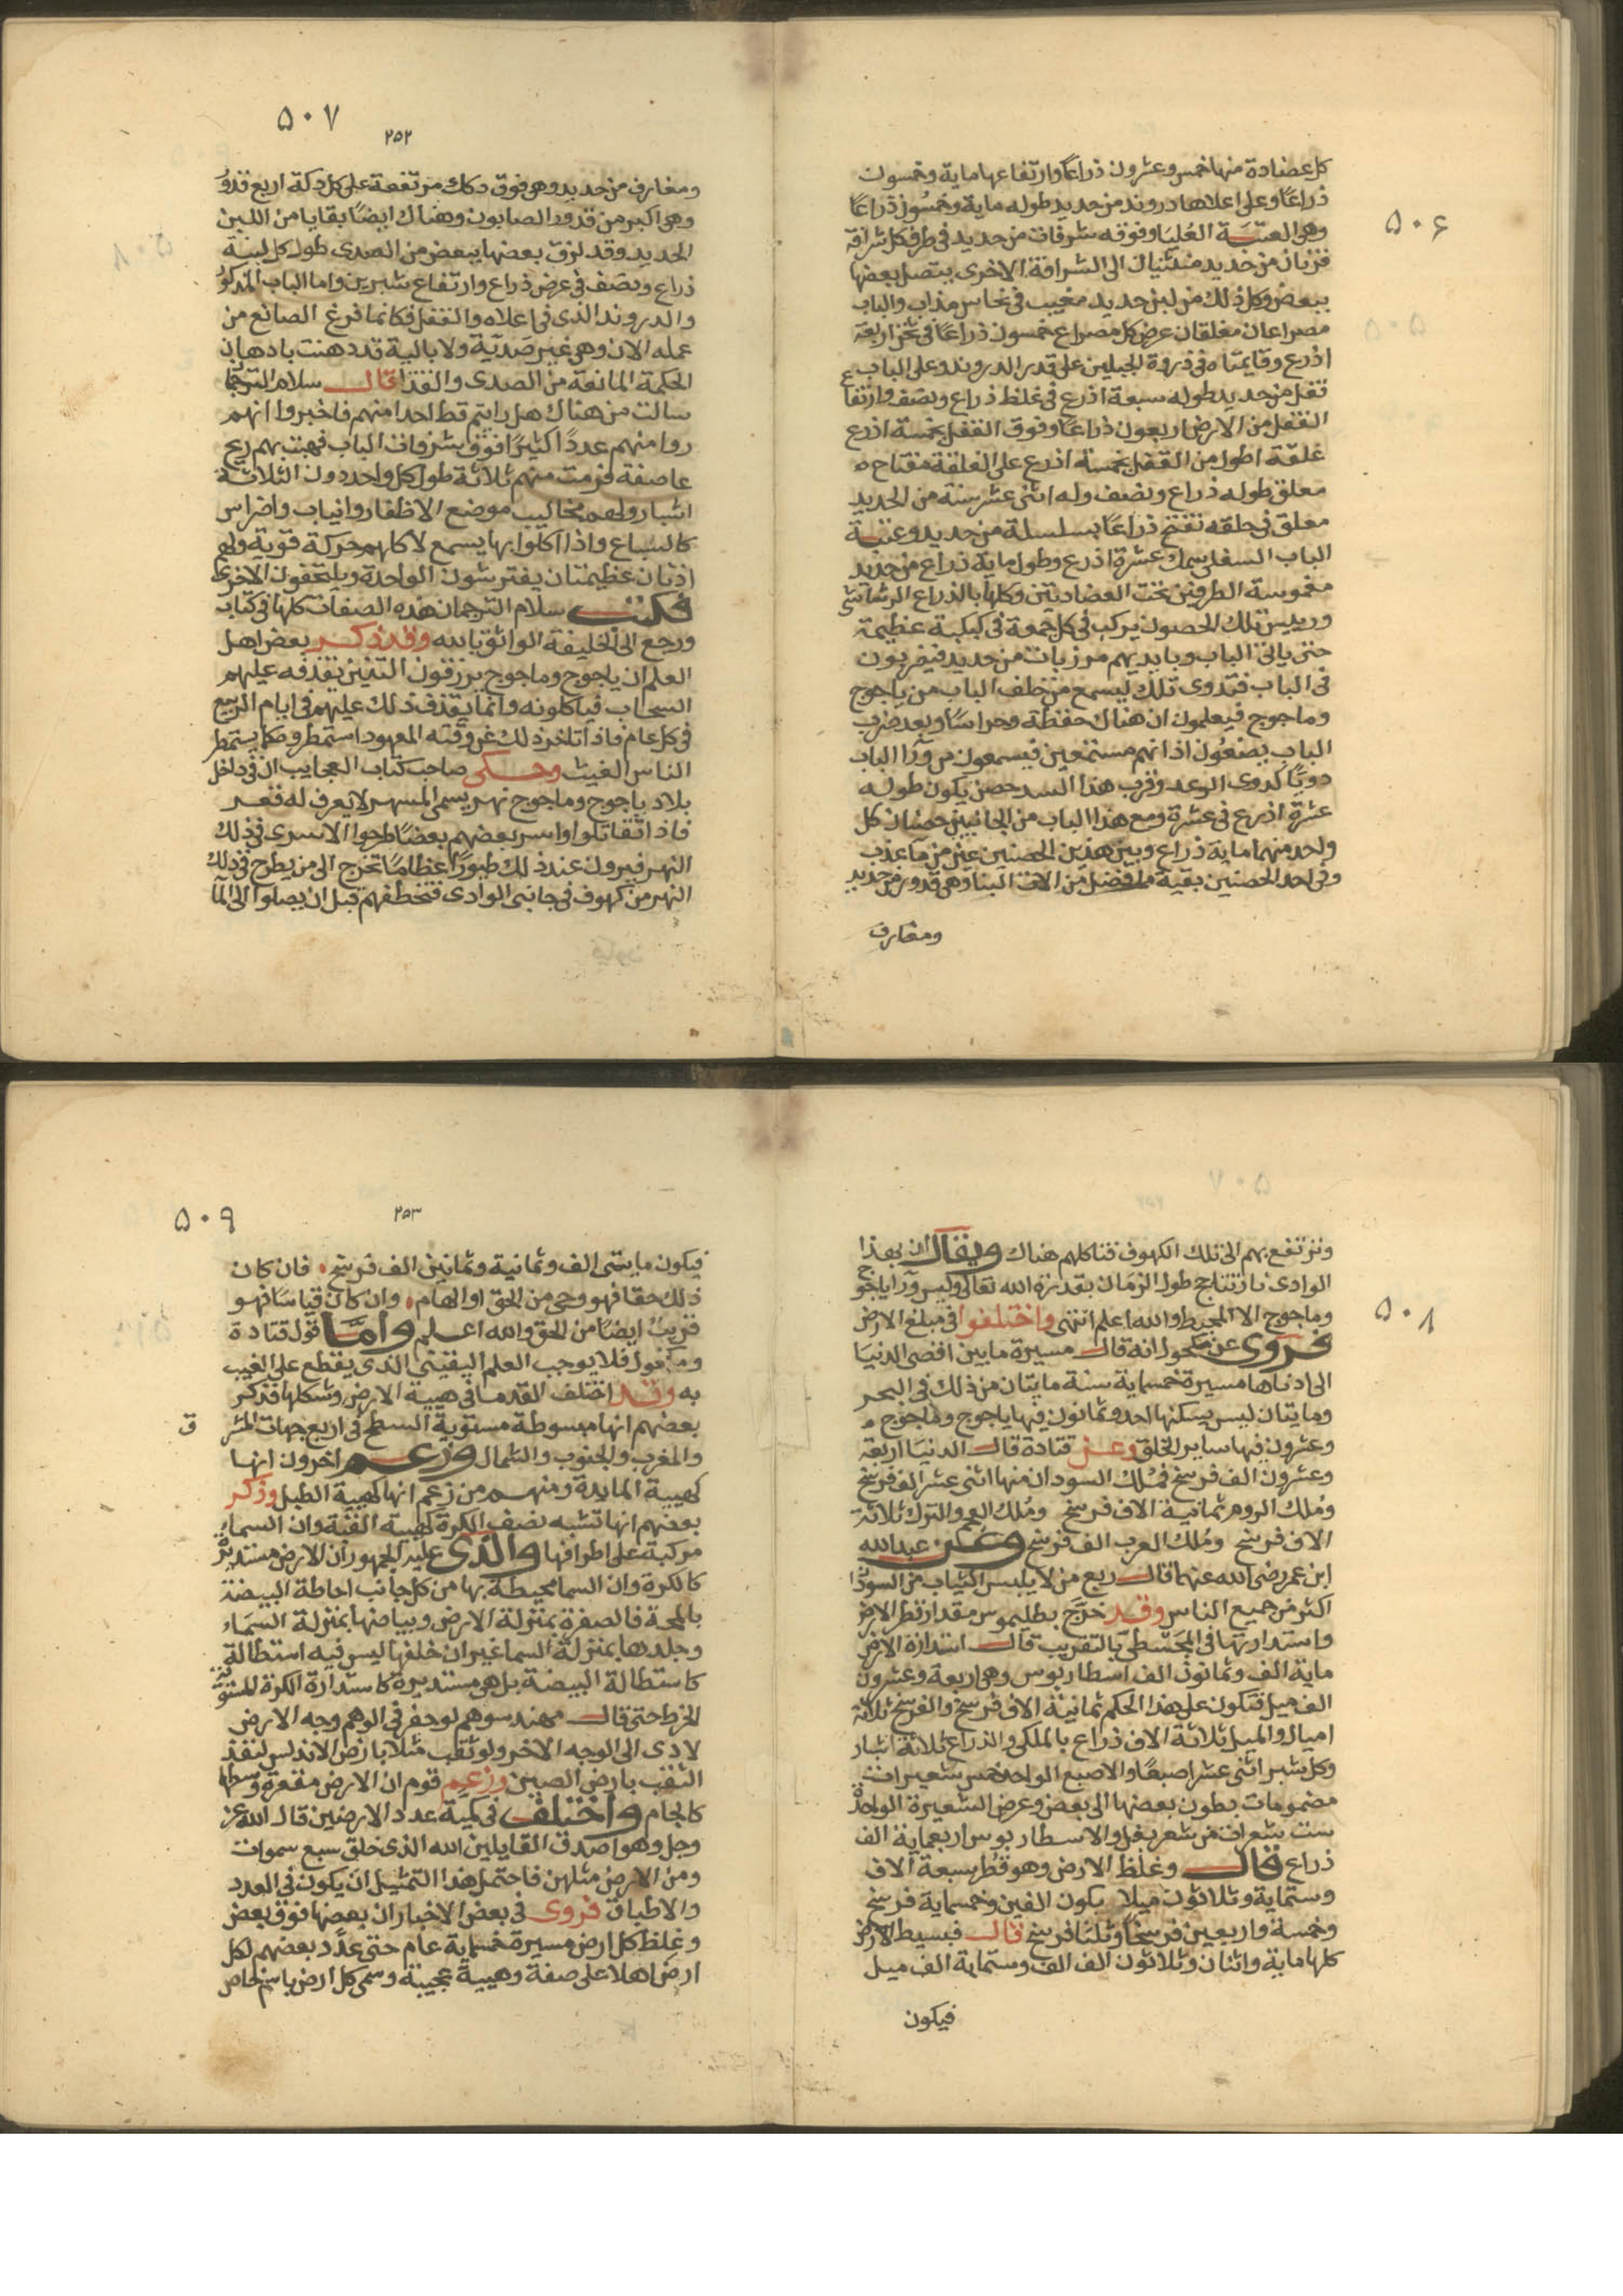 ۵۰۶
كل عضادة منها خمس وعشرون ذراعًا وارتفاعها ماية وخمسون
ذراعًا وعلى اعلاها دروند من حديد طوله ماية وخمسون ذراعًا
وهى العتبة العليا وفوقه شرفات من حديد فى طرف كل شرافة
قرنان من حديد منثنيان الى الشرافة الاخرى يتصل بعضها
ببعض وكل ذلك من لبن حديد مغيب فى نحاس مذاب والباب
مصراعان مغلقان عرض كل مصراع خمسون ذراعًا فى ثخن اربعة
اذرع وقايمتاه فى ذروة الجبلين على قدر الدروند وعلى الباب
قفل من حديد طوله سبعة اذرع فى غلظ ذراع ونصف وارتفاع
القفل من الارض اربعون ذراعًا وفوق القفل بخمسة اذرع
غلقة اطول من القفل بخمسة اذرع على الغلقة مفتاح
معلق طوله ذراع ونصف وله اثنى عشر سنة من الحديد
معلق فى حلقه تفتح ذراعًا بسلسلة من حديد وعتبة
الباب السفلى سمك عشرة اذرع وطول ماية ذراع من حديد
مغموسة الطرفين تحت العضادتين وكلها بالذراع الرشاشى
وريس تلك الحصون يركب فى كل جمعة فى كبكبة عظيمة
حتى ياتى الباب وبايديهم مرزبات من حديد فيضربون
فى الباب فتدوى تلك ليسمع من خلف الباب من ياجوج
وماجوج فيعلمون ان هناك حفظة وحراسًا وبعد ضرب
الباب يضعون اذانهم مستمعين فيسمعون من ورآ الباب
دويًا كدوى الرعد وقرب هذا السد حصن يكون طوله
عشرة اذرع فى عشرة ومع هذا الباب من الجانبين حصنان كل
واحد منهما ماية ذراع وبين هذين الحصنين عين من ما عذب
وفى احد الحصنين بقية ما فضل من الات البنا وهى قدور من حديد
ومغارف
۵۰۷
۲۵۲
ومغارف من حديد وهى فوق دكك مرتفعة على كل دكة اربع قدور
وهى اكبر من قدور الصابون وهناك ايضًا بقايا من اللبن
الحديد وقد لزق بعضها ببعض من الصدى طول كل لبنة
ذراع ونصف فى عرض ذراع وارتفاع شبرين واما الباب المذكور
والدروند الذى فى اعلاه والقفل فكانما فرغ الصانع من
عمله الان وهى غير صدية ولا بالية قد دهنت بادهان
الحكمة المانعة من الصدى والقذا قال سلام الترجمان
سالت من هناك هل رايتم قط احدا منهم فاخبروا انهم
روا منهم عددًا كثيرًا فوق شرفات الباب فهبت بهم ريح
عاصفة فرمت منهم ثلاثة طول كل واحد دون الثلاثة
اشبار ولهم مخاليب موضع الاظفار وانياب واضراس
كالسباع واذا اكلوا بها يسمع لاكلهم حركة قوية ولهم
اذنان عظيمتان يفترشون الواحدة ويلتحفون الاخرى
فكتب سلام الترجمان هذه الصفات كلها فى كتاب
ورجع الى الخليفة الواثق بالله وقد ذكر بعض اهل
العلم ان ياجوج وماجوج يرزقون التنين يقذفه عليهم
السحاب فياكلونه وانما يقذف ذلك عليهم فى ايام الربيع
فى كل عام فاذا تاخر ذلك عن وقته المعهود استمطروه كما يستمطر
الناس الغيث وحكى صاحب كتاب العجايب ان فى داخل
بلاد ياجوج وماجوج نهر يسمى المسهر لا يعرف له قعر
فاذا تقاتلوا واسر بعضهم بعضًا طرحوا الاسرى فى ذلك
النهر فيرون عند ذلك طيورًا عظامًا تخرج الى من يطرح فى ذلك
النهر من كهوف فى جانبى الوادى فتخطفهم قبل ان يصلوا الى المآ
۵۰۸
وترتفع بهم الى تلك الكهوف فتاكلهم هناك ويقال ان بهذا
الوادى نار تتاجج طول الزمان بقدرة الله تعالى وليس ورآ ياجوج
وماجوج الا المحيط والله اعلم انتهى واختلفوا فى مبلغ الارض
فروى عن مكحول انه قال مسيرة ما بين اقصى الدنيا
الى ادناها مسيرة خمسماية سنة مايتان من ذلك فى البحر
ومايتان ليس يسكنها احد وثمانون فيها ياجوج وماجوج
وعشرون فيها ساير الخلق وعن قتادة قال الدنيا اربعة
وعشرون الف فرسخ فملك السودان منها اثنى عشر الف فرسخ
وملك الروم ثمانية الاف فرسخ وملك العجم والترك ثلاثة
الاف فرسخ وملك العرب الف فرسخ وعن عبد الله
ابن عمر رضى الله عنهما قال ربع من لا يلبس الثياب من السودان
اكثر من جميع الناس وقد خرّج بطليموس مقدار قطر الارض
واستدارتها فى المجسطى بالتقريب قال استدارة الارض
ماية الف وثمانون الف اسطاربوس وهى اربعة وعشرون
الف ميل فتكون على هذا الحكم ثمانية الاف فرسخ والفرسخ ثلاثة
اميال والميل ثلاثة الاف ذراع بالملكى والذراع ثلاثة اشبار
وكل شبر اثنى عشر اصبعًا والاصبع الواحد خمس شعيرات
مضمومات بطون بعضها الى بعض وعرض الشعيرة الواحدة
ست شعرات من شعر بغل والاسطاربوس اربعماية الف
ذراع قال وغلظ الارض وهو قطرها سبعة الاف
وستماية وثلاثون ميلا يكون الفين وخمسماية فرسخ
وخمسة واربعين فرسخًا وثلثا فرسخ قال فبسيط الارض
كلها ماية واثنان وثلاثون الف الف وستماية الف ميل
فيكون
۵۰۹
۲۵۳
فيكون مايتى الف وثمانية وثمانين الف فرسخ فان كان
ذلك حقا فهو وحى من الحق او الهام وان كان قياسًا فهو
قريب ايضًا من الحق والله اعلم وأمّا قول قتادة
ومكحول فلا يوجب العلم اليقينى الذى يقطع على الغيب
به وقد اختلف القدما فى هيية الارض وشكلها فذكر
بعضهم انها مبسوطة مستوية السطح فى اربع جهات المشرق
والمغرب والجنوب والشمال وزعم اخرون انها
كهيية المايدة ومنهم من زعم انها كهيية الطبل وذكر
بعضهم انها تشبه نصف الكرة كهيية القبة وان السماء
مركبة على اطرافها والذى عليه الجمهور ان الارض مستديرة
كالكرة وان السما محيطة بها من كل جانب احاطة البيضة
بالمحة فالصفرة بمنزلة الارض وبياضها بمنزلة السماء
وجلدها بمنزلة السما غير ان خلقها ليس فيه استطالة
كاستطالة البيضة بل هى مستديرة كاستدارة الكرة المستوية
الخرط حتى قال مهندسوهم لو حفر فى الوهم وجه الارض
لادى الى الوجه الاخر ولو ثقب مثلًا بارض الاندلس لنفذ
الثقب بارض الصين وزعم قوم ان الارض مقعرة وسطها
كالجام واختلف فى كمية عدد الارضين قال الله عز
وجل وهو اصدق القايلين الله الذى خلق سبع سموات
ومن الارض مثلهن فاحتمل هذا التمثيل ان يكون فى العدد
والاطباق فروى فى بعض الاخبار ان بعضها فوق بعض
وغلظ كل ارض مسيرة خمسماية عام حتى عدّد بعضهم لكل
ارض اهلا على صفة وهيية عجيبة وسمى كل ارض باسم خاص